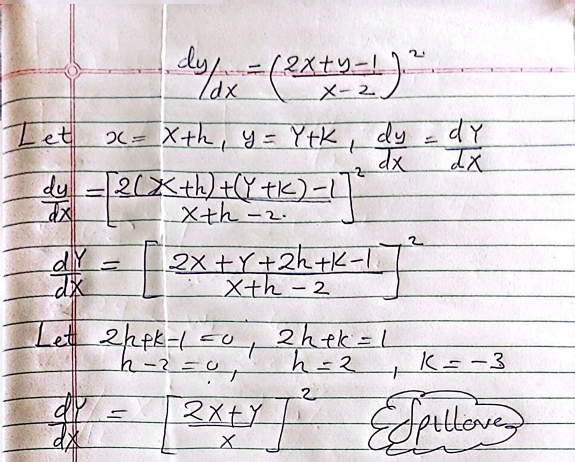 dy/dx = (2x+y-1 / x-2)²
Let x = X+h, y = Y+K, dy/dx = dY/dX
dy/dx = [2(X+h)+(Y+K)-1 / X+h-2.]²
dY/dX = [2X+Y+2h+K-1 / X+h-2]²
Let 2h+k-1=0, 2h+k=1
h-2=0, h=2, K=-3
dY/dX = [2X+Y / X]²